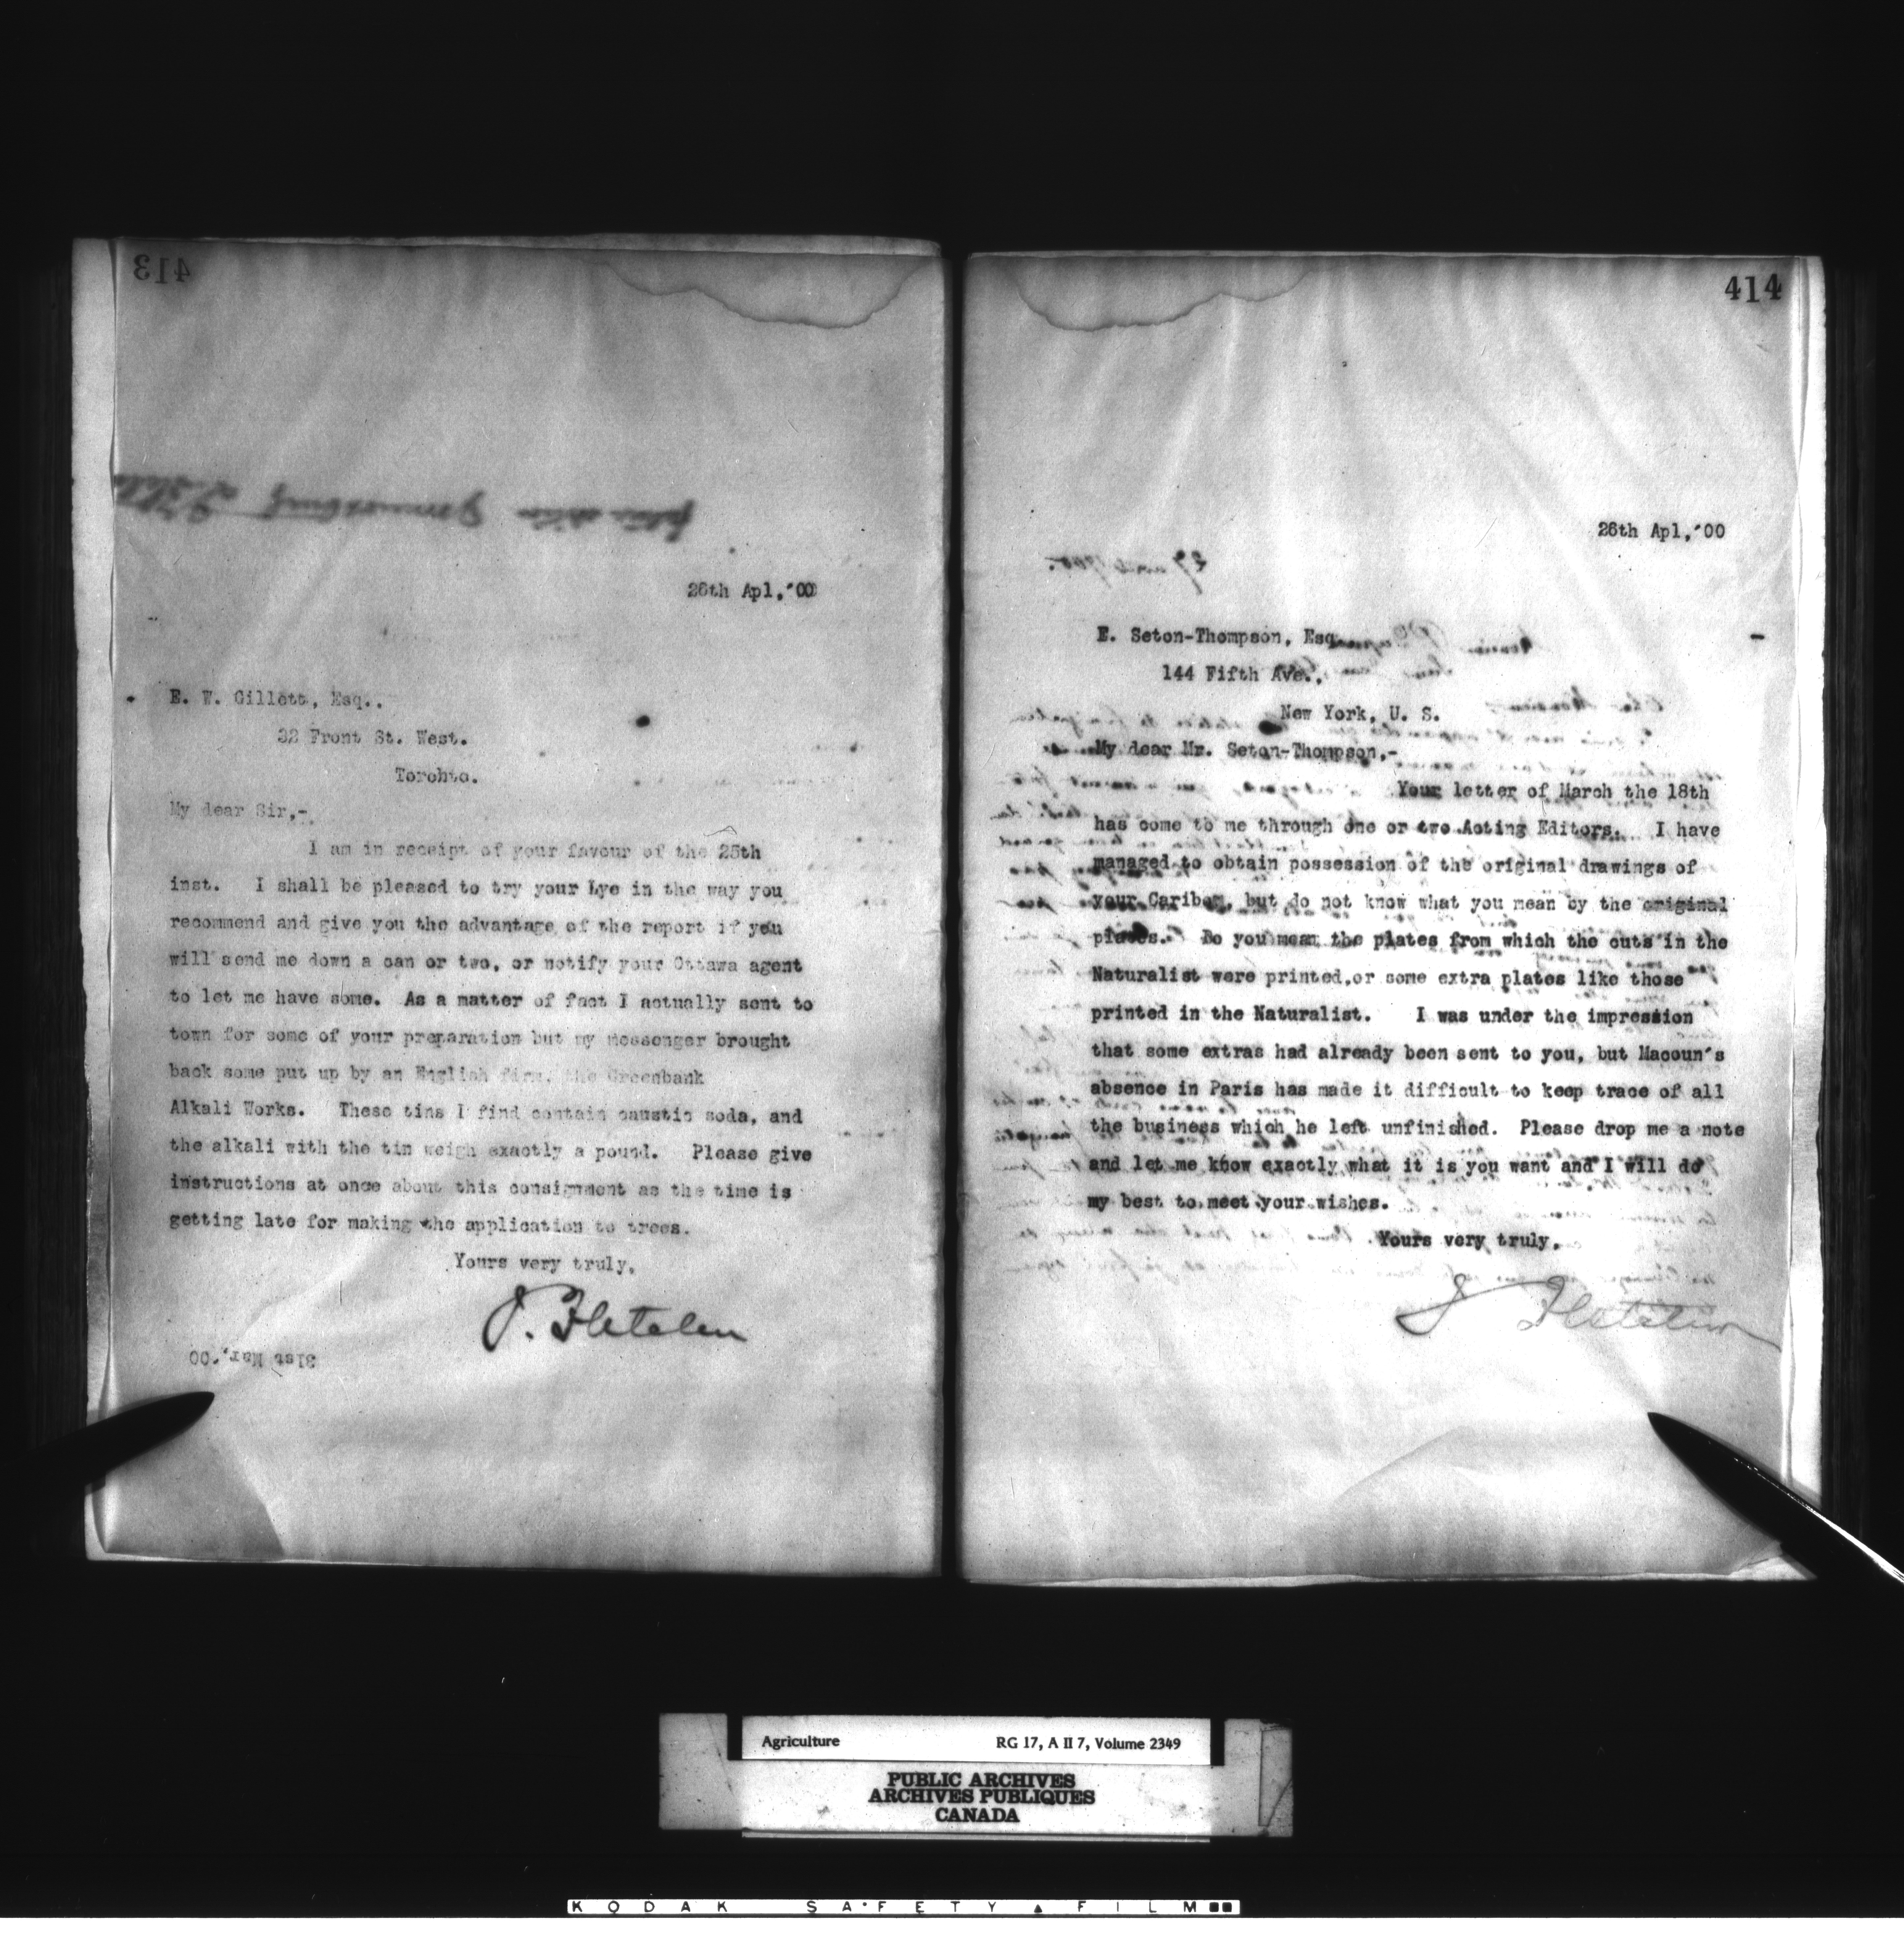 413
26th Apl,'00
E. W. Gillett, Esq.,
32 Front St. West.
Toronto.
My dear Sir,-
I am in receipt of your favour of the 25th
inst. I shall be pleased to try your Lye in the way you
recommend and give you the advantage of the report if you
will send me down a can or two, or notify your Ottawa agent
to let me have some. As a matter of fact I actually sent to
town for some of your preparation but my messenger brought
back some put up by an English firm, the Greenbank
Alkali Works. These tins I find contain caustic soda, and
the alkali with the tin weigh exactly a pound. Please give
instructions at once about this consignment as the time is
getting late for making the application to trees.
Yours very truly,
J. Fletcher
31st Mar.'00
414
26th Apl,'00
E. Seton-Thompson, Esq
144 Fifth Ave.,
New York, U. S.
My dear Mr. Seton-Thompson,-
Your letter of March the 18th
has come to me through one or two Acting Editors. I have
managed to obtain possession of the original drawings of
your Caribou, but do not know what you mean by the original
plates. Do you mean the plates from which the cuts in the
Naturalist were printed, or some extra plates like those
printed in the Naturalist. I was under the impression
that some extras had already been sent to you, but Macoun's
absence in Paris has made it difficult to keep trace of all
the business which he left unfinished. Please drop me a note
and let me know exactly what it is you want and I will do
my best to meet your wishes.
Yours very truly,
J Fletcher
Agriculture RG 17, A II 7, Volume 2349
PUBLIC ARCHIVES
ARCHIVES PUBLIQUES
CANADA
KODAK SAFETY FILM